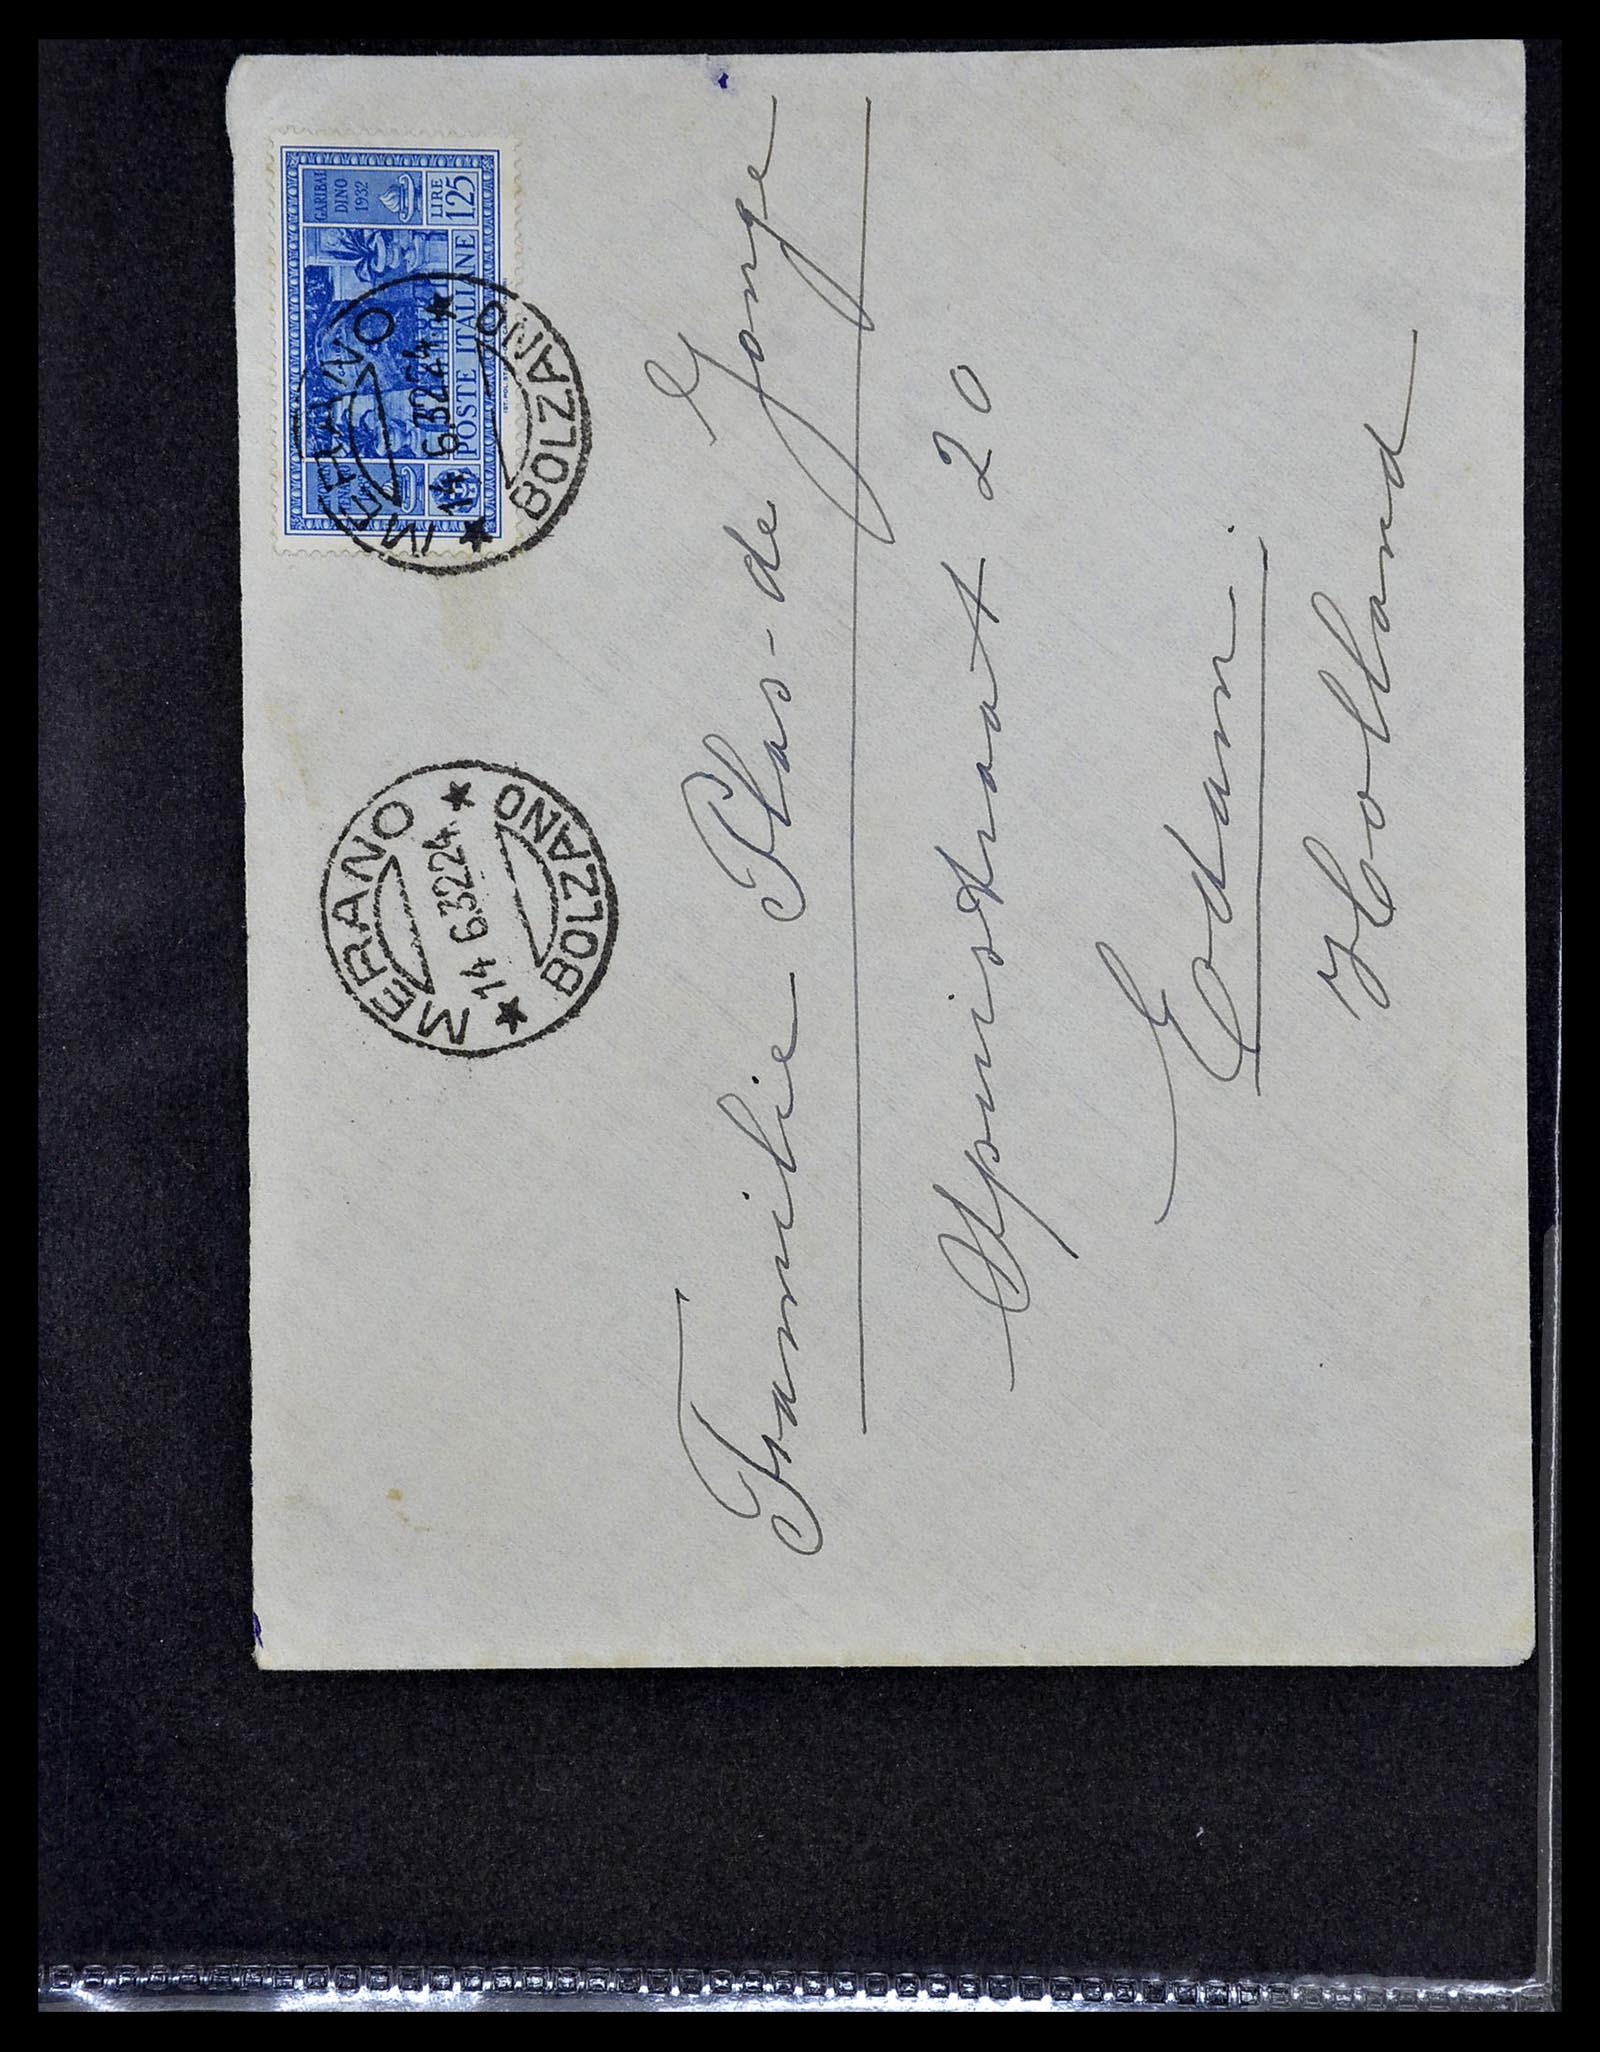 GARIBAL
DINO
1932
LIRE
1,25
POSTE ITALIANE
MERANO
14 6.32 24
BOLZANO
MERANO
14 6.32 24
BOLZANO
Familie Plas-de Jonge
Spuistraat 20
Edam.
Holland